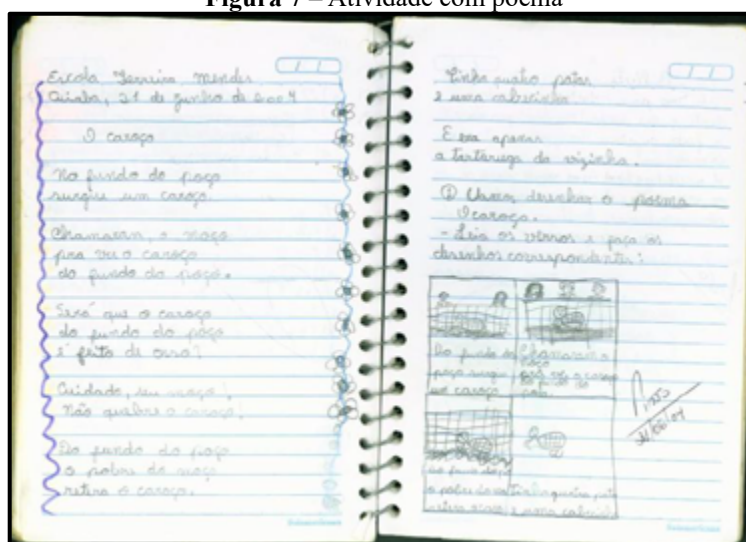 Figura 7 – Atividade com poema
Escola Ferreira Mendes
Cuiabá, 21 de junho de 2004
O caroço
No fundo do poço
surgiu um caroço.
Chamaram, o moço
pra ver o caroço
do fundo do poço.
Será que o caroço
do fundo do poço
é feito de osso?
Cuidado, seu moço!
Não quebre o caroço!
Do fundo do poço
o pobre do moço
retira o caroço.
Tinha quatro patas
e uma cabecinha
E era apenas
a tartaruga da vizinha.
① Vamos desenhar o poema
O caroço.
- Leia os versos e faça os
desenhos correspondentes:
Do fundo do
poço surgiu
um caroço
Chamaram o
moço
pra ver o caroço
do fundo do
Do fundo do poço
o pobre do
retira
Tinha quatro
e uma